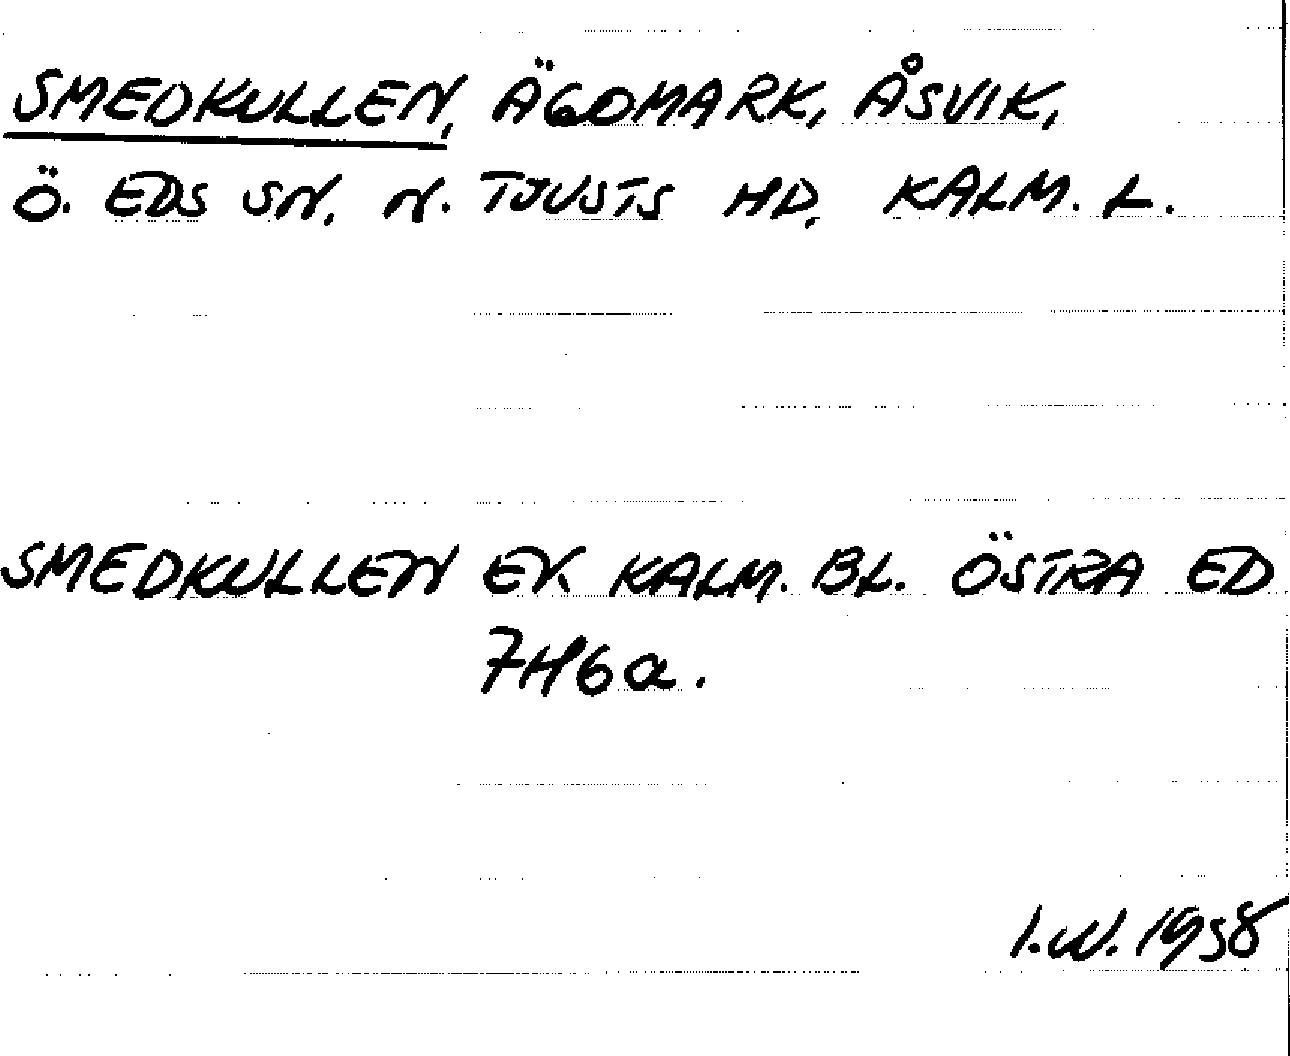 SMEDKULLEN, ÄGOMARK, ÅSVIK,
Ö. EDS SN. N. TJUSTS HD. KALM. L.
SMEDKULLEN EK KALM. BL. ÖSTRA ED
7H6a.
I.W. 1958